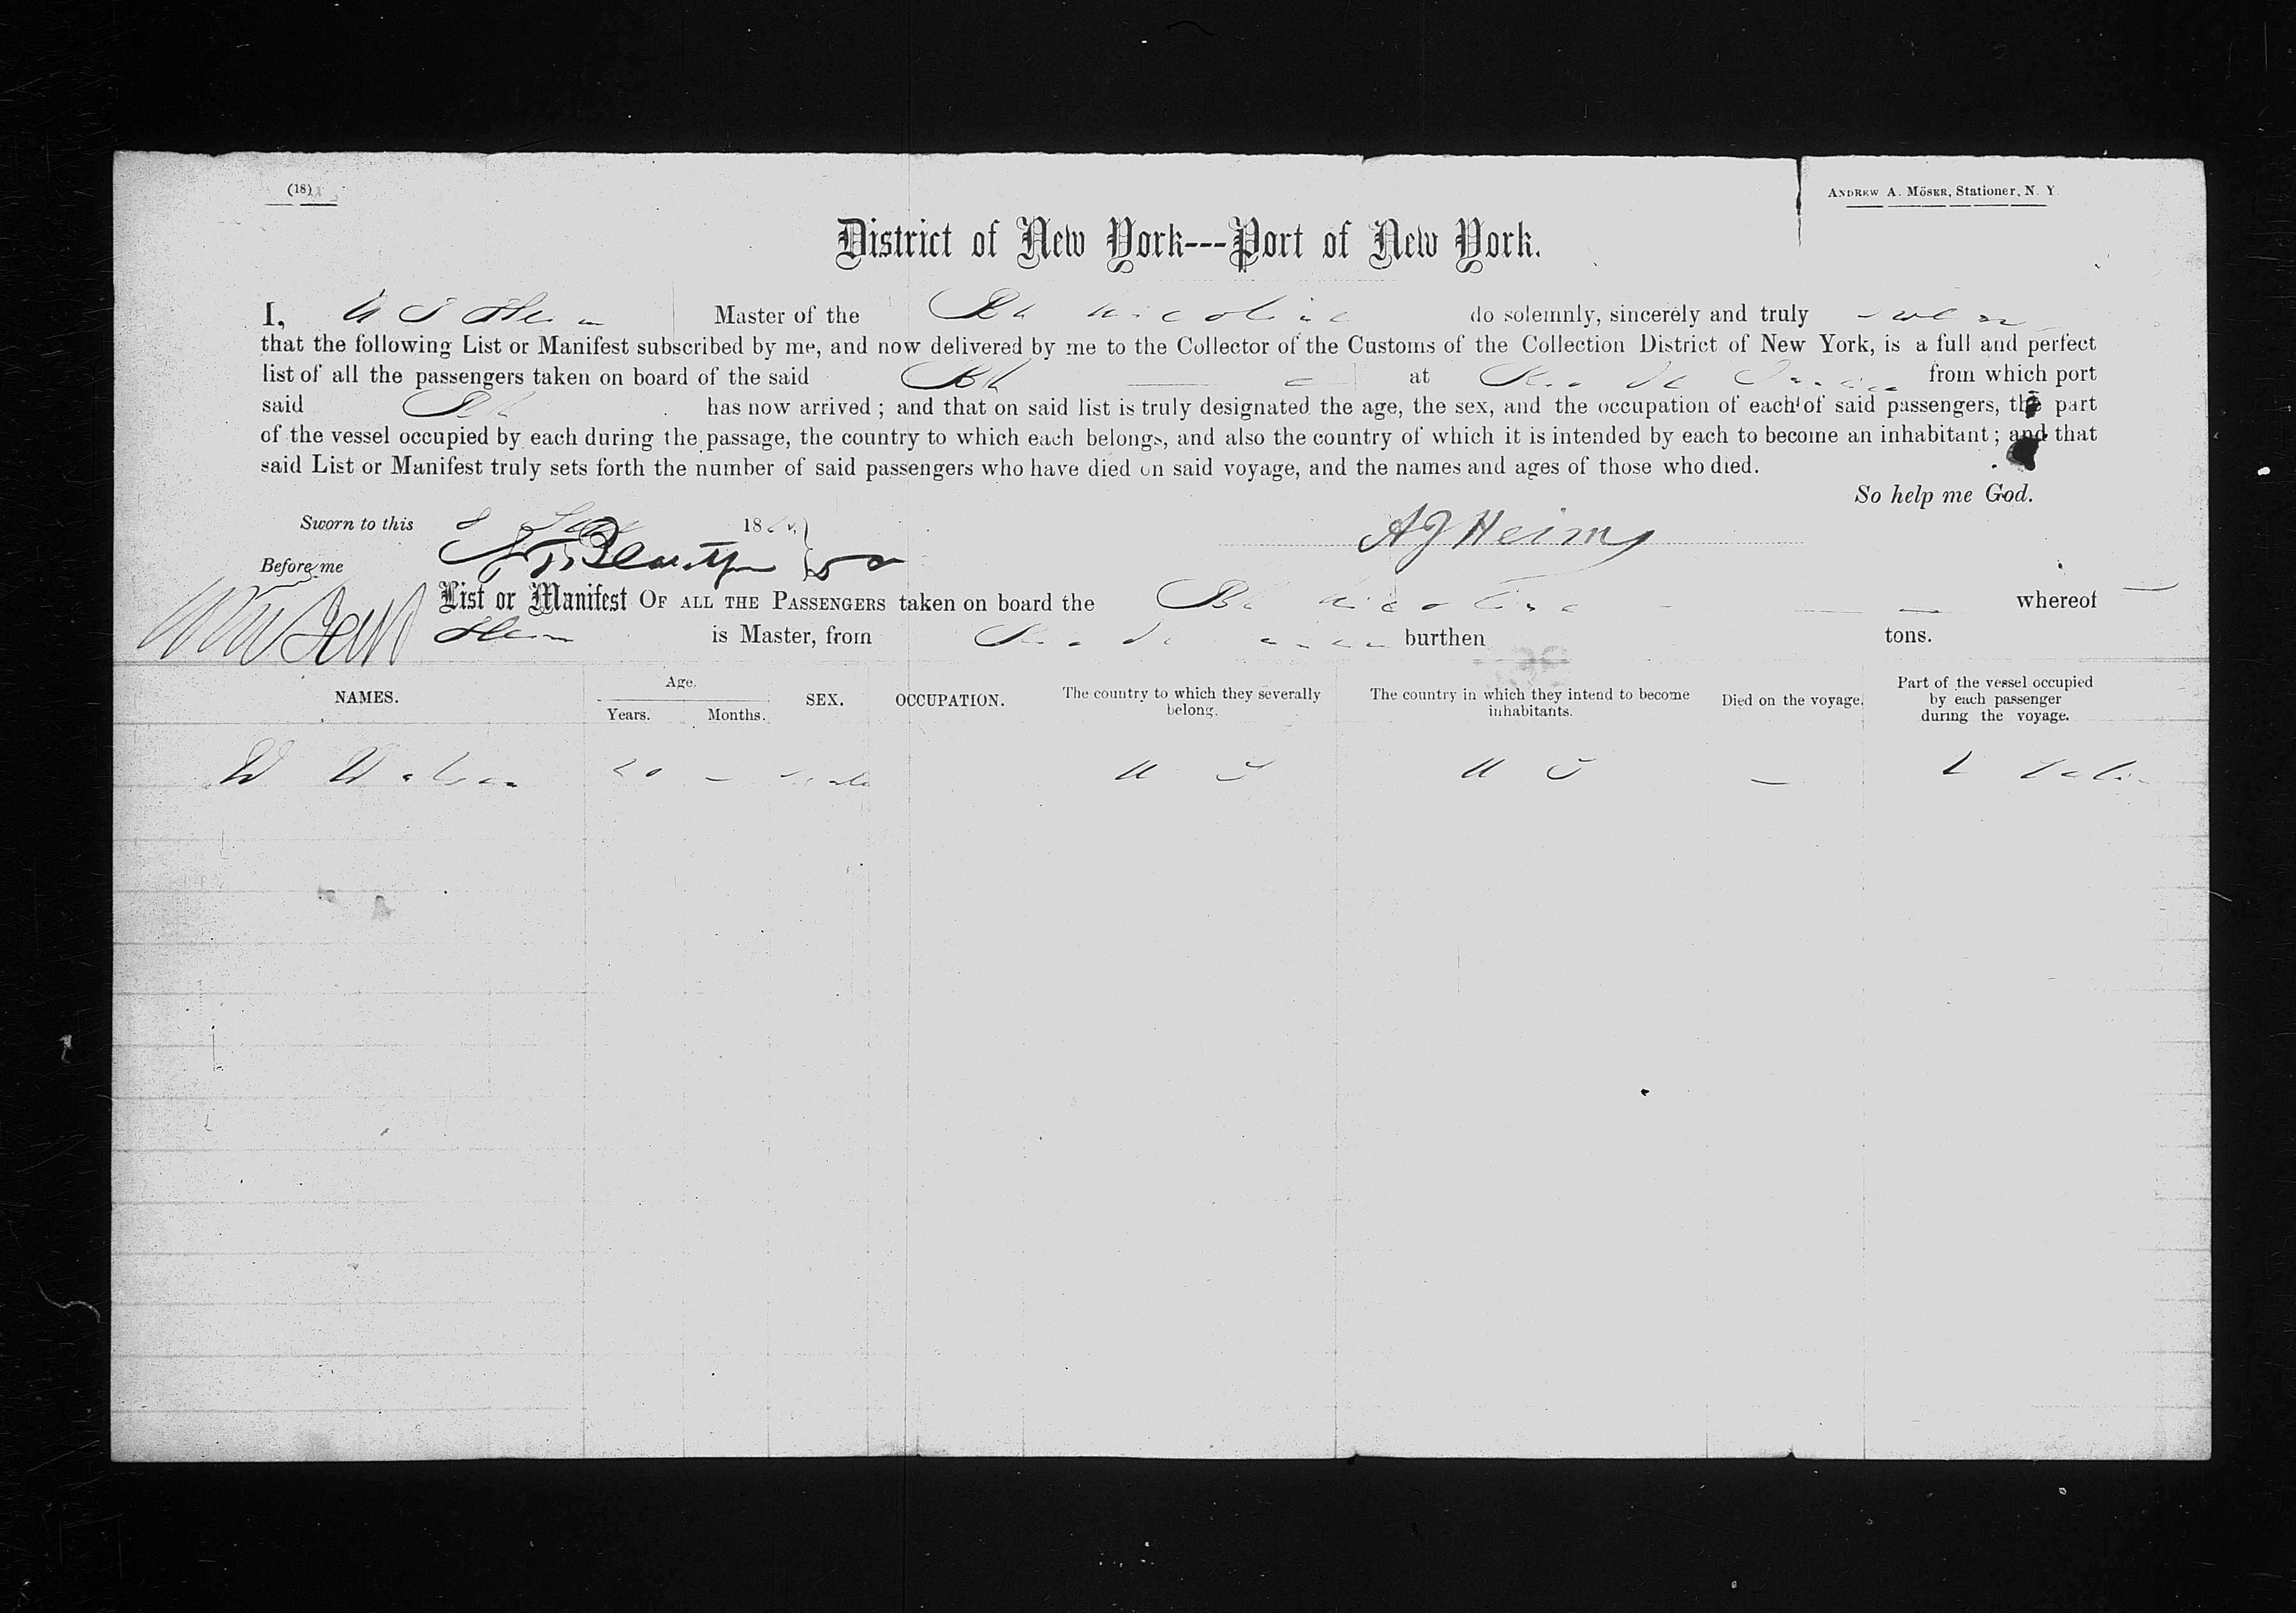 (18)
ANDREW A. MÖSER, Stationer, N. Y
District of New York---Port of New York.
I, Master of the Bk Nicoline do solemnly, sincerely and truly swear
that the following List or Manifest subscribed by me, and now delivered by me to the Collector of the Customs of the Collection District of New York, is a full and perfect
list of all the passengers taken on board of the said Bk at Rio de Janeiro from which port
said Bk has now arrived; and that on said list is truly designated the age, the sex, and the occupation of each of said passengers, the part
of the vessel occupied by each during the passage, the country to which each belongs, and also the country of which it is intended by each to become an inhabitant; and that
said List or Manifest truly sets forth the number of said passengers who have died on said voyage, and the names and ages of those who died.
So help me God.
Sworn to this 18
AJ Heims
Before me
List or Manifest OF ALL THE PASSENGERS taken on board the Bk Nicoline whereof
is Master, from Rio de Janeiro burthen tons.
NAMES. Age. Years. Months. SEX. OCCUPATION. The country to which they severally belong. The country in which they intend to become inhabitants. Died on the voyage. Part of the vessel occupied by each passenger during the voyage.
W — male U S U S —